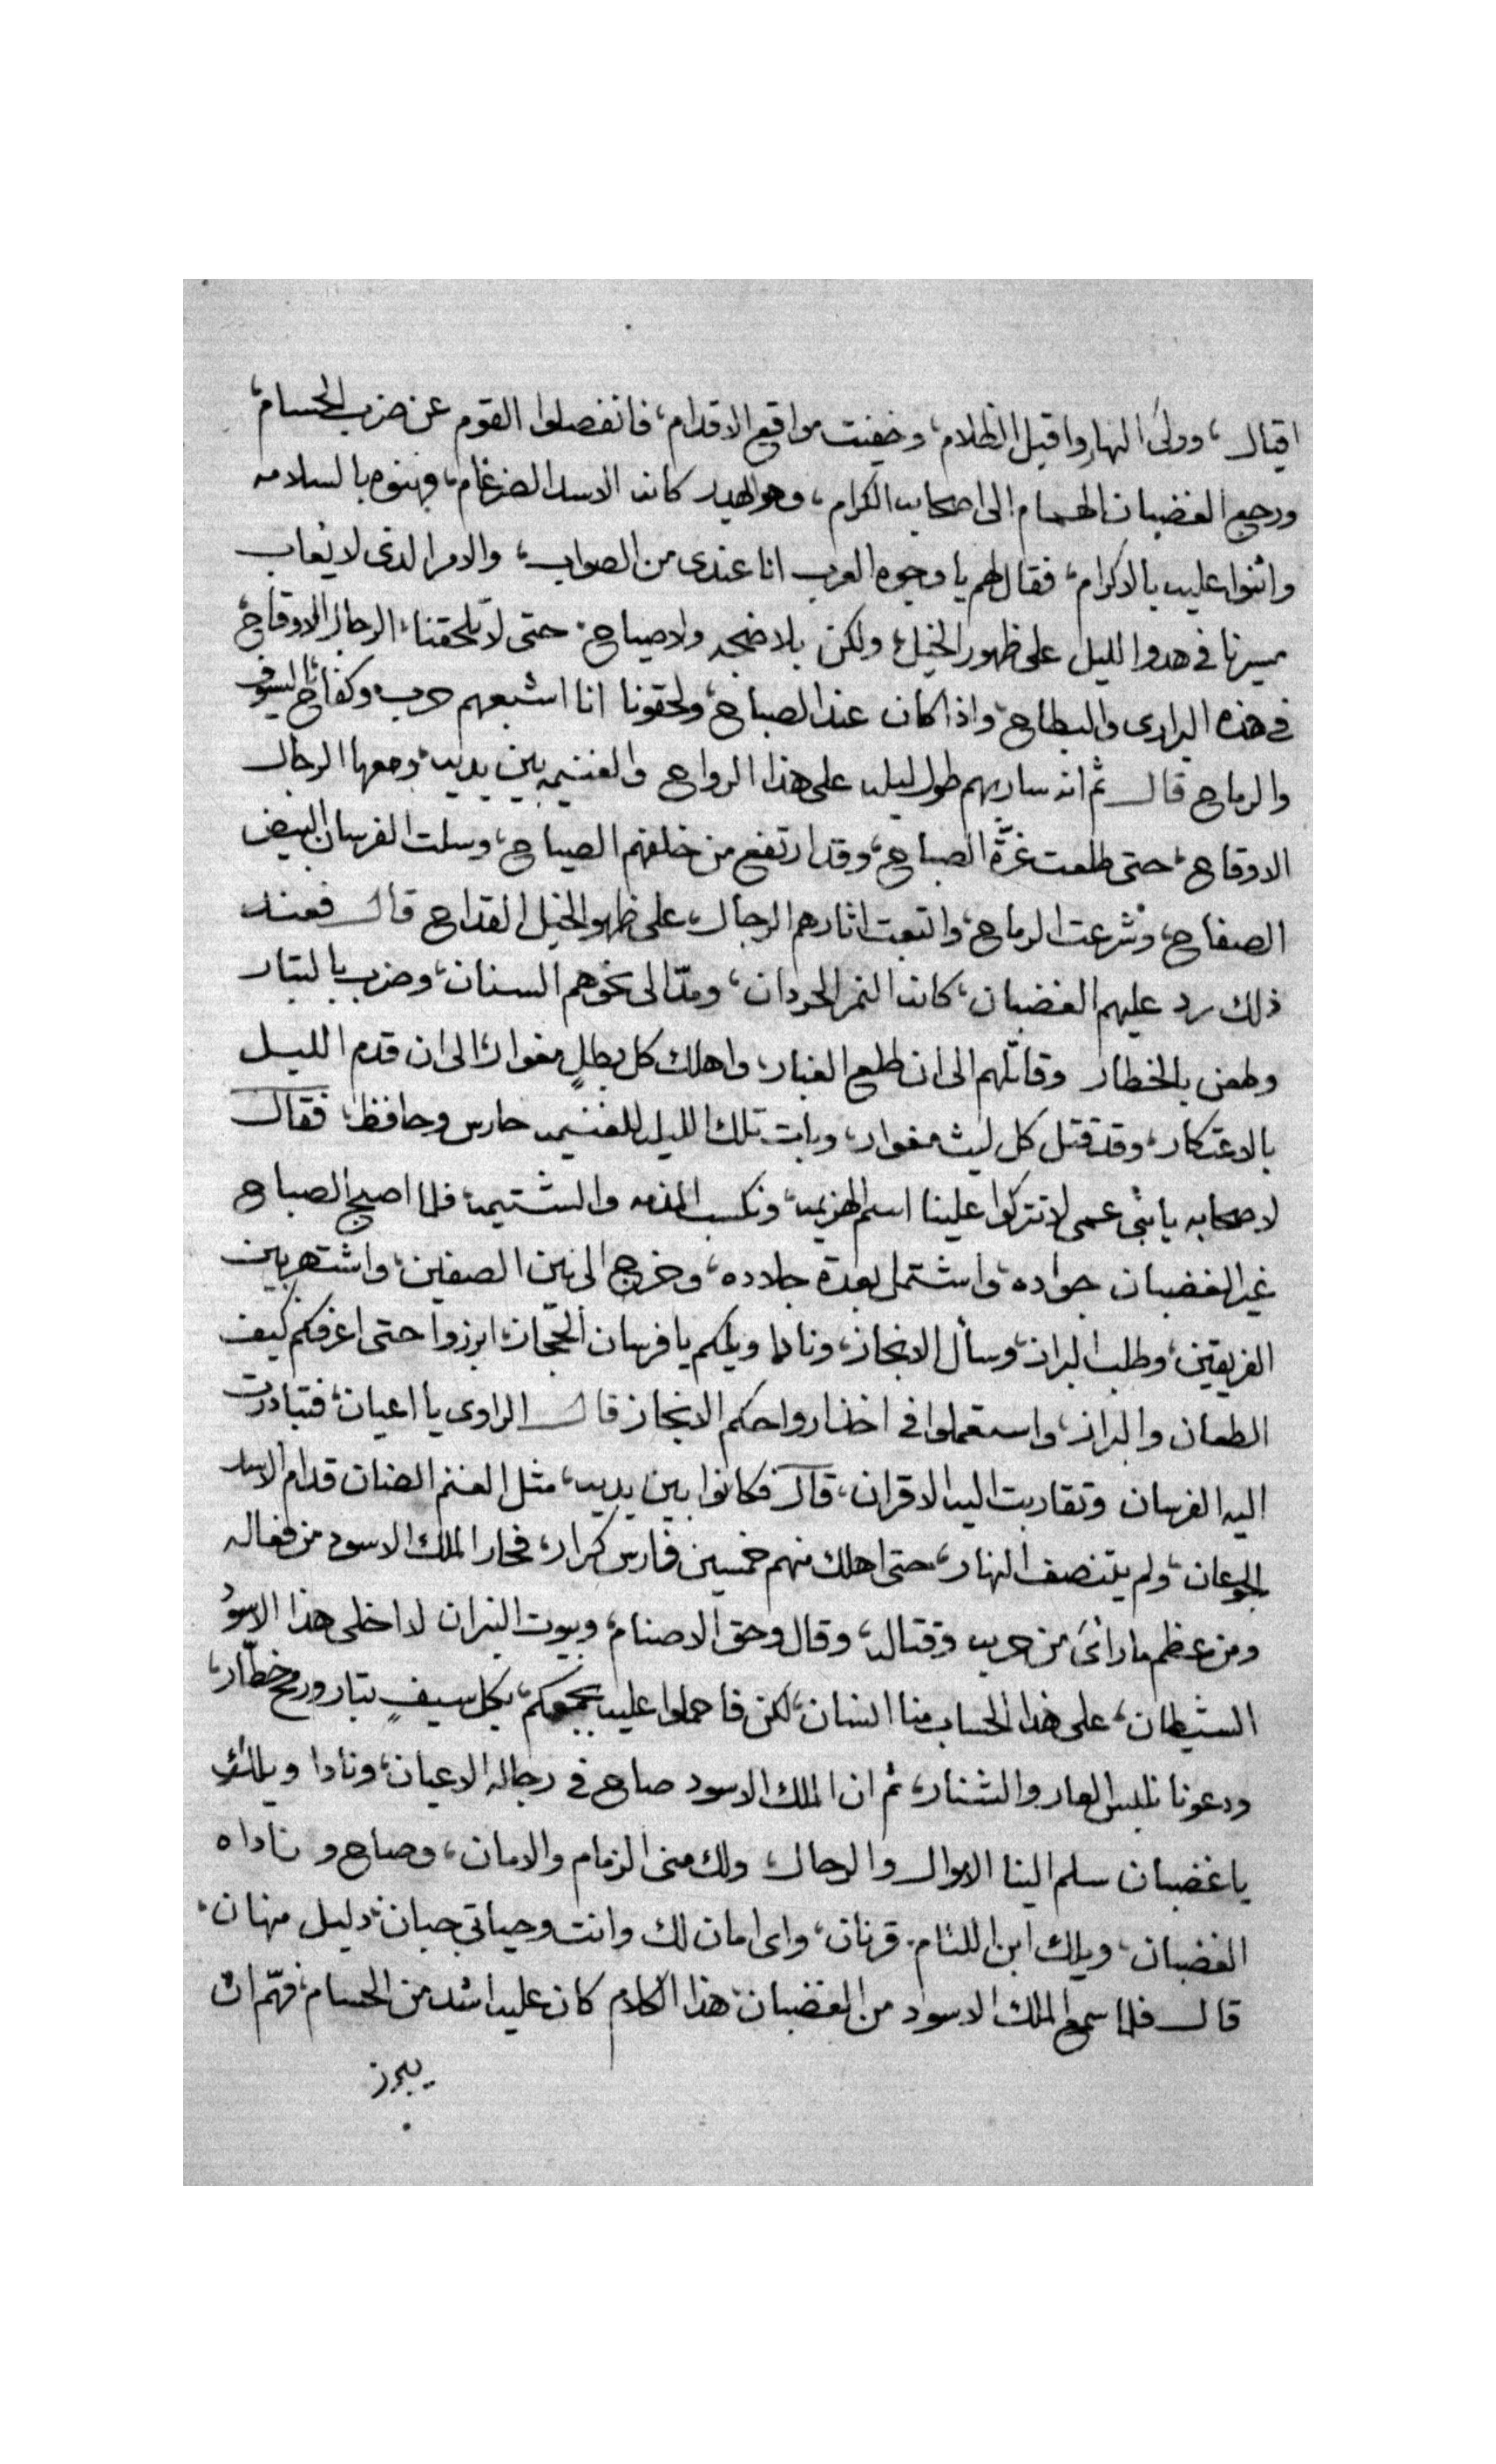 اقبال، وولىَ النهار واقبل الظلام، وخفيت مواقيع الاقدام، فانفصلوا القوم عن ضرب الحسام،
ورجع الغضبان الهمام الى اصحابه الكرام، وهو يهدر كانه الاسد الضرغام، وهنوه بالسلامه
واثنوا عليه بالاكرام، فقال لهم يا وجوه العرب انا عندى من الصواب، والامر الدى لا يُعاب
مسيرنا فى هدوا الليل على ظهور الخيل، ولكن بلا ضجه ولا صياح، حتى لا تلحقنا، الرجال الاوقاح،
فى هذه البرارى والبطاح، واذا كان عند الصباح، ولحقونا انا اشبعهم حرب وكفاح، بالسيوف
والرماح قال ثم انه سار بهم طول ليله على هذا الرواح والغنيمه بين يديه، ومعها الرجال
الاوقاح، حتى طلعت غرَّة الصباح، وقد ارتفع من خلفهم الصياح، وسلت الفرسان البيض
الصفاح، وشرعت الرماح، واتبعت اثارهم الرجال، على ظهور الخيل القداح قال فعند
ذلك رد عليهم الغضبان، كانه النمر الحردان، ومدّ الى نحوهم السنان، وضرب بالبتار
وطعن بالخطار وقاتلهم الى ان طلع الغبار، واهلك كل بطلٍ مغوار، الى ان قدم الليل
بالاعتكار، وقد قتل كل ليث مغوار، وبات تلك الليله للغنيمه حارس وحافظ، فقال
لاصحابه يا بنى عمى لا تتركوا علينا اسم الهزيمه، ونكسب المذمه والشتيمه، فلما اصبح الصباح
غير الغضبان جواده، واشتمل بعدة جلاده، وخرج الى بين الصفين، واشتهر بين
الفريقين، وطلب البراز، وسأل الانجاز، ونادا ويلكم يا فرسان الحجاز، ابرزوا حتى اعرفكم كيف
الطعان والبراز، واستعملوا فى اخذ ارواحكم الانجاز قال الراوى يا اعيان، فتبادرت
اليه الفرسان وتقاربت اليه الاقران، قال فكانوا بين يديه، مثل الغنم الضنان قدام الاسد
الجوعان، ولم يتنصف النهار، حتى اهلك منهم خمسين فارس كرار، فحار الملك الاسود من فعاله
ومن عظم ما رائ من حربه وقتاله، وقال وحق الاصنام، وبيوت النيران لا اخلى هذا الاسوُد
الشيطان، على هذا الحساب منا انسان، لكن فاحملوا عليه بجمعكم، بكل سيفٍ بتار ورمح خطّار،
ودعونا نلبس العار والشنار، ثم ان الملك الاسود صاح فى رجاله الاعيان، ونادا ويلك
يا غضبان سلم الينا الاموال والرجال، ولك منى الزمام والامان، وصاح وناداه
الغضبان، ويلك ابن اللئام قرنان، واى امان لك وانت وحياتى جبان، دليل مهان،
قال فلما سمع الملك الاسود من الغضبان، هذا الكلام كان عليه اشد من الحسام، فهمّ ان
يبرز